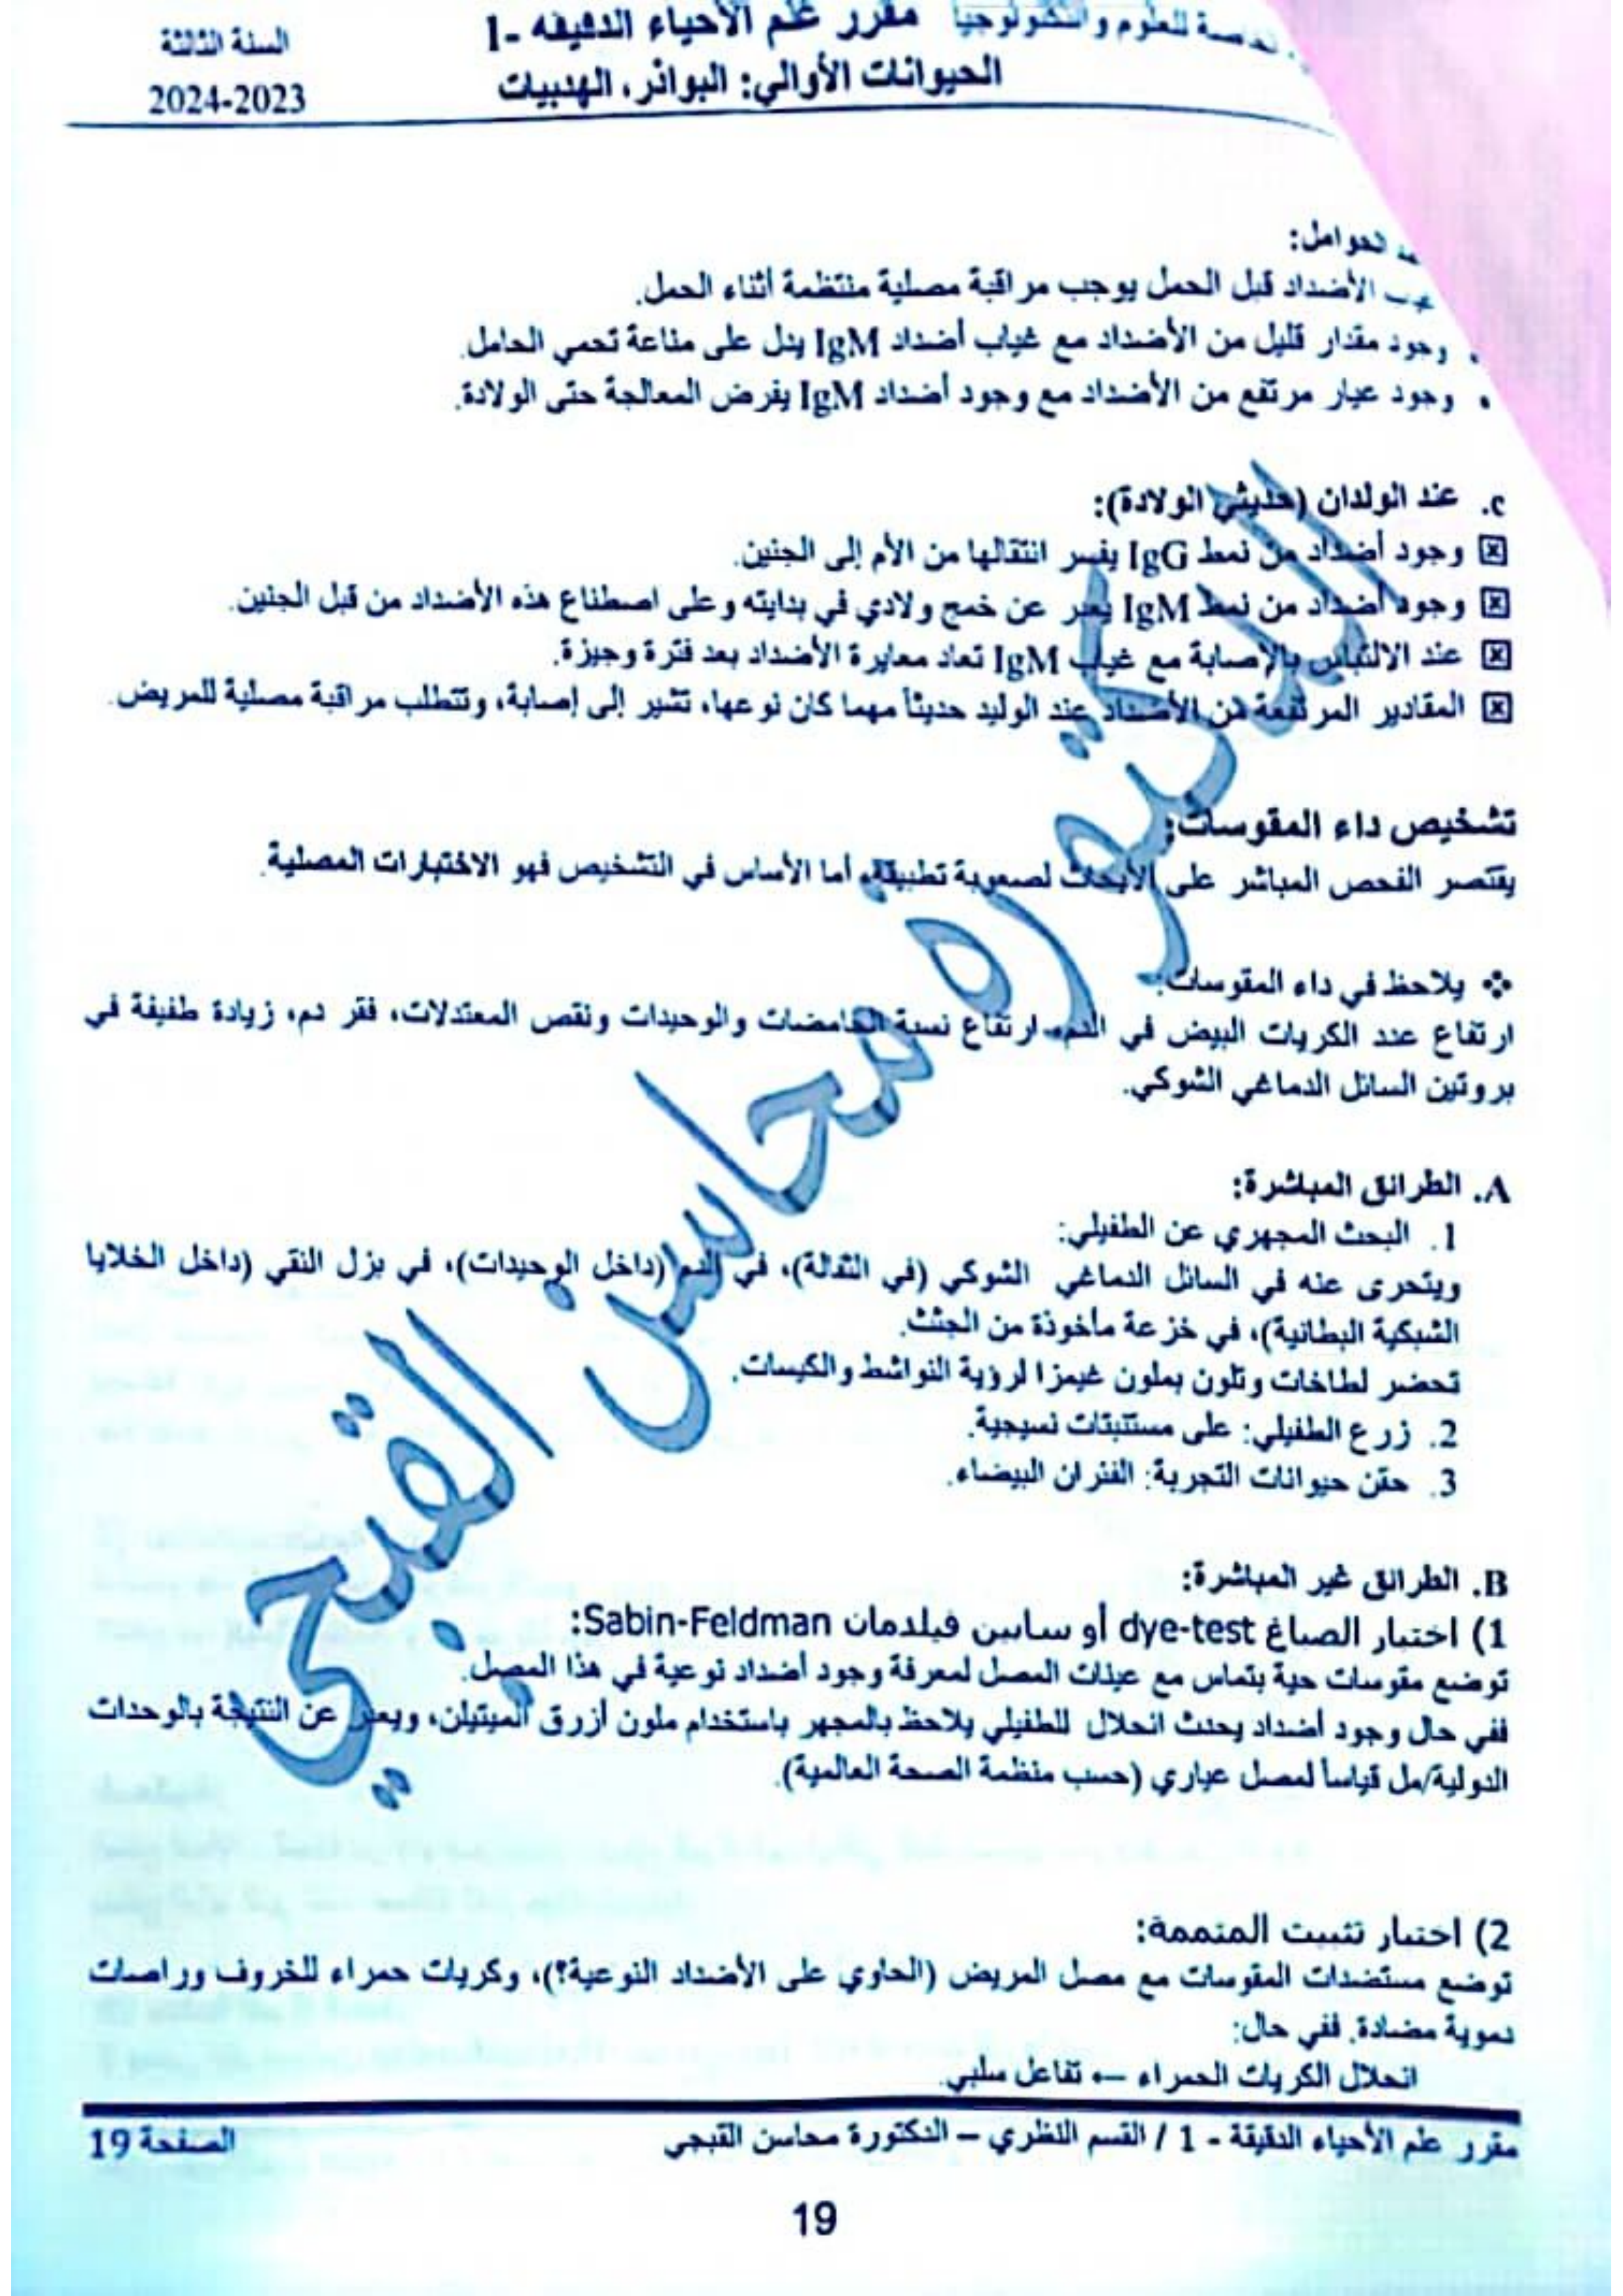 الخاصة للعلوم والتكنولوجيا مقرر علم الأحياء الدقيقة -1 السنة الثالثة
الحيوانات الأوالي: البوائر، الهدبيات 2023-2024
الحوامل:
الأضداد قبل الحمل يوجب مراقبة مصلية منتظمة أثناء الحمل.
• وجود مقدار قليل من الأضداد مع غياب أضداد IgM يدل على مناعة تحمي الحامل.
• وجود عيار مرتفع من الأضداد مع وجود أضداد IgM يفرض المعالجة حتى الولادة.
c. عند الولدان (حديثي الولادة):
وجود أضداد من نمط IgG يفسر انتقالها من الأم إلى الجنين.
وجود أضداد من نمط IgM يعبر عن خمج ولادي في بدايته وعلى اصطناع هذه الأضداد من قبل الجنين.
عند الالتباس بالإصابة مع غياب IgM تعاد معايرة الأضداد بعد فترة وجيزة.
المقادير المرتفعة من الأضداد عند الوليد حديثاً مهما كان نوعها، تشير إلى إصابة، وتتطلب مراقبة مصلية للمريض.
تشخيص داء المقوسات:
يقتصر الفحص المباشر على الأبحاث لصعوبة تطبيقه، أما الأساس في التشخيص فهو الاختبارات المصلية.
❖ يلاحظ في داء المقوسات:
ارتفاع عدد الكريات البيض في الدم، ارتفاع نسبة الحامضات والوحيدات ونقص المعتدلات، فقر دم، زيادة طفيفة في
بروتين السائل الدماغي الشوكي.
A. الطرائق المباشرة:
1. البحث المجهري عن الطفيلي:
ويتحرى عنه في السائل الدماغي الشوكي (في الثفالة)، في الدم (داخل الوحيدات)، في بزل النقي (داخل الخلايا
الشبكية البطانية)، في خزعة مأخوذة من الجثث.
تحضر لطاخات وتلون بملون غيمزا لرؤية النواشط والكيسات.
2. زرع الطفيلي: على مستنبتات نسيجية.
3. حقن حيوانات التجربة: الفئران البيضاء.
B. الطرائق غير المباشرة:
1) اختبار الصباغ dye-test أو سابين فيلدمان Sabin-Feldman:
توضع مقوسات حية بتماس مع عينات المصل لمعرفة وجود أضداد نوعية في هذا المصل.
ففي حال وجود أضداد يحدث انحلال للطفيلي يلاحظ بالمجهر باستخدام ملون أزرق الميتيلن، ويعبر عن النتيجة بالوحدات
الدولية/مل قياساً لمصل عياري (حسب منظمة الصحة العالمية).
2) اختبار تثبيت المتممة:
توضع مستضدات المقوسات مع مصل المريض (الحاوي على الأضداد النوعية؟)، وكريات حمراء للخروف وراصات
دموية مضادة. ففي حال:
انحلال الكريات الحمراء ← تفاعل سلبي.
مقرر علم الأحياء الدقيقة - 1 / القسم النظري – الدكتورة محاسن القبجي الصفحة 19
19
الدكتورة محاسن القبجي